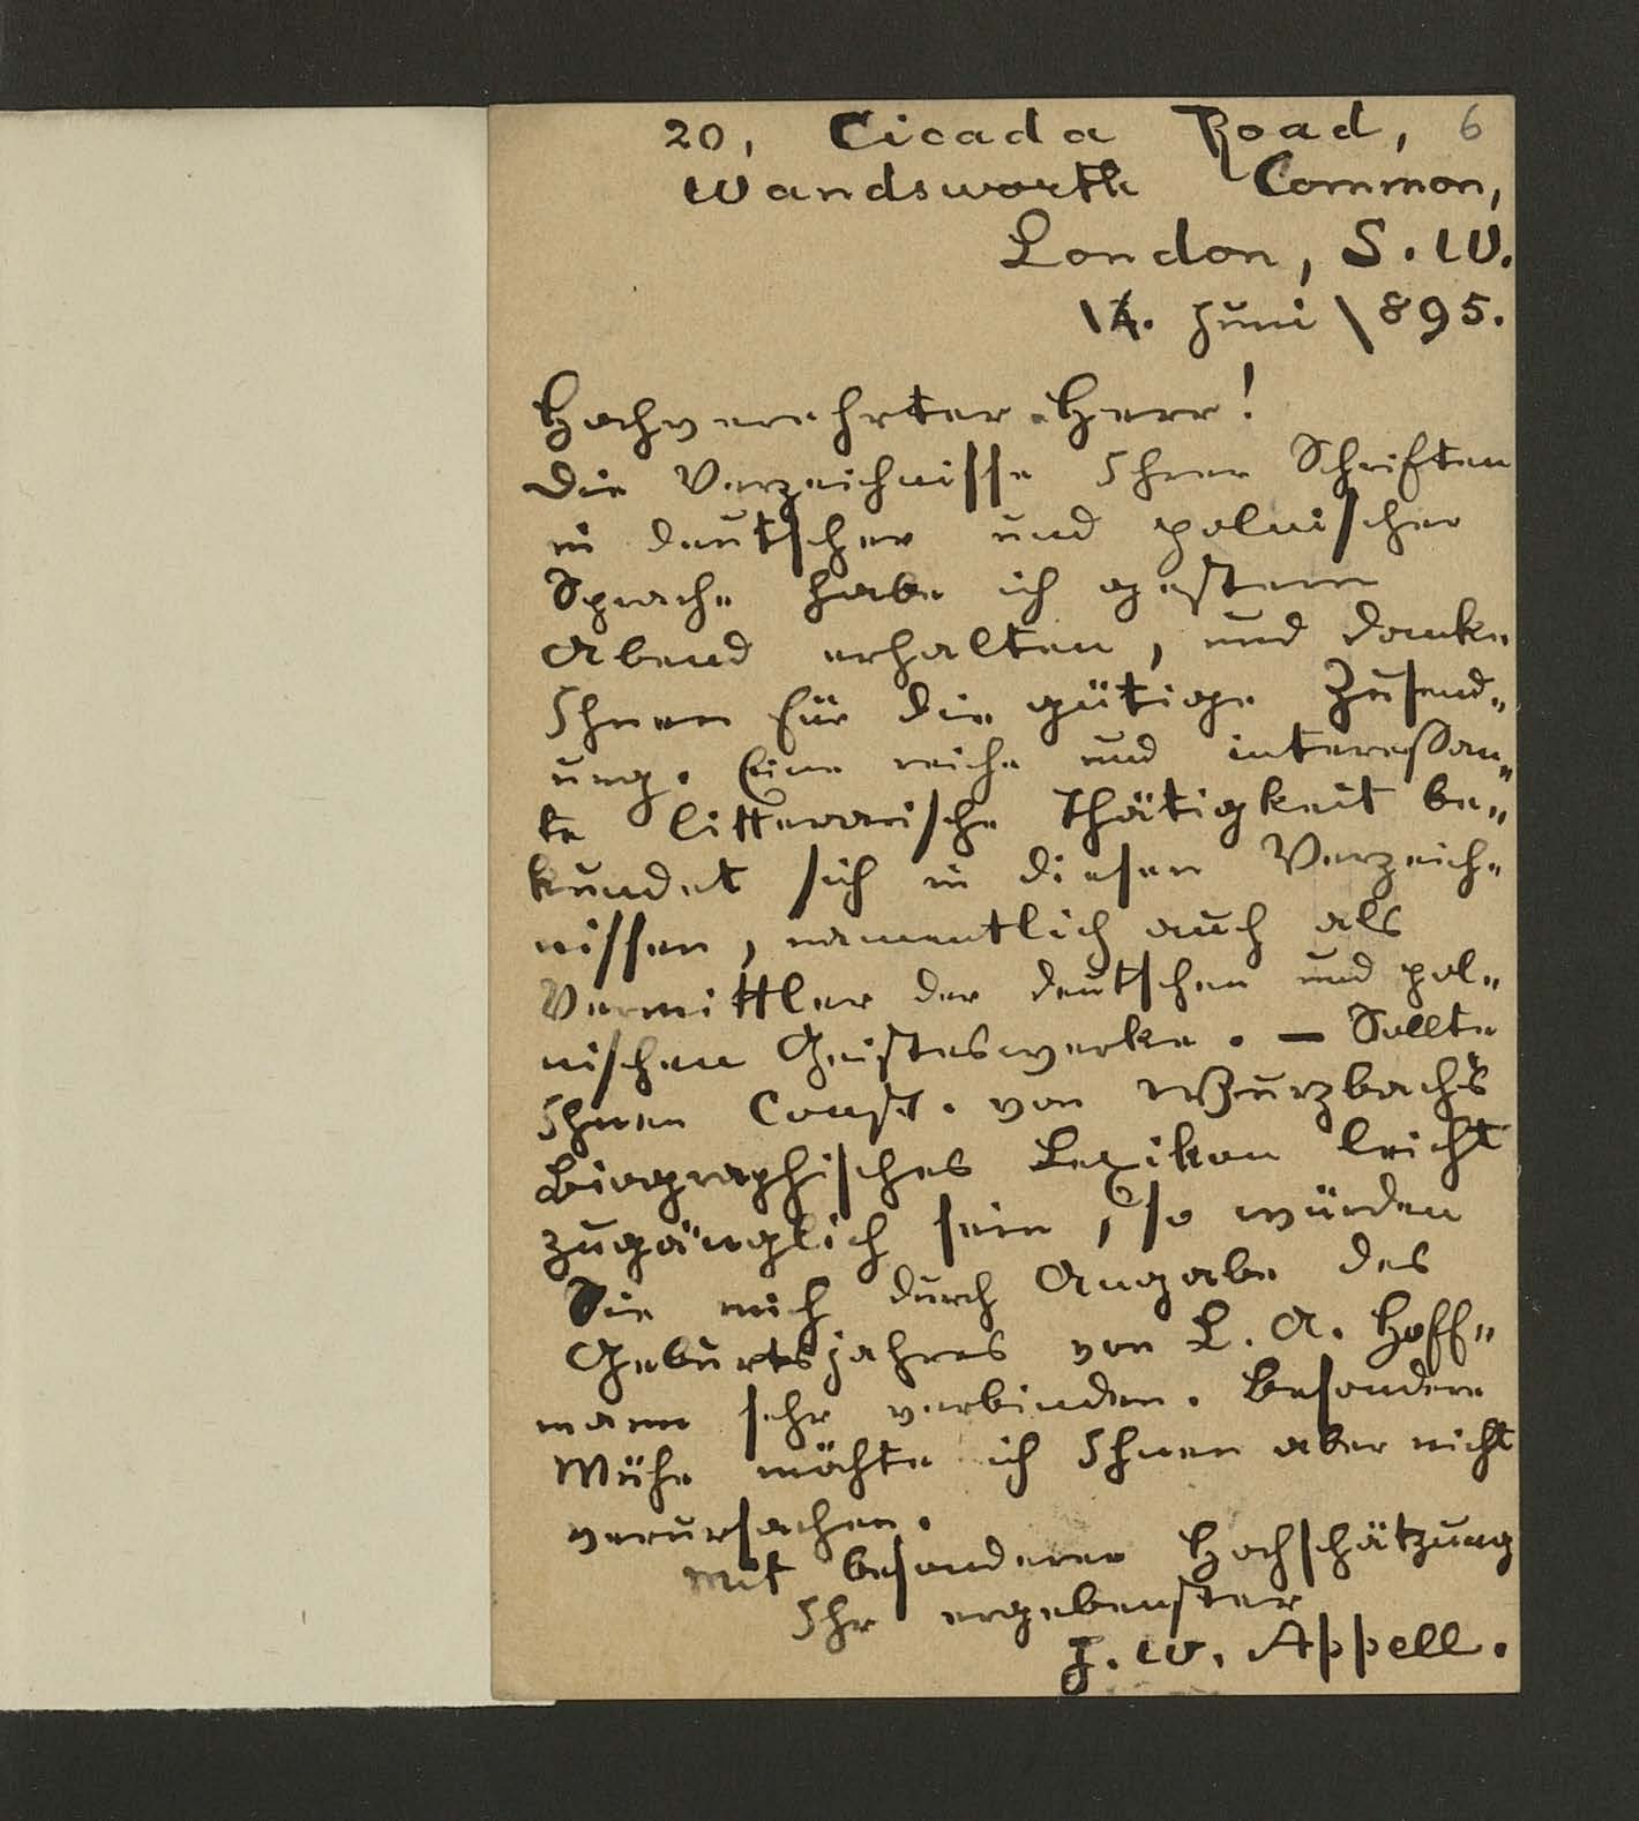 20, Cicada Road, 6
Wandsworth Common,
London, S.W.
14. Juni 1895.
Hochverehrter Herr!
Die Verzeichnisse Ihrer Schriften
in deutscher und polnischer
Sprache habe ich gestern
Abend erhalten, und danke
Ihnen für die gütige Zusend„
ung. Eine reiche und interessan„
te litterarische Thätigkeit be„
kundet sich in diesen Verzeich„
nissen, namentlich auch als
Vermittler der deutschen und pol„
nischen Geisteswerke. – Sollte
Ihnen Const. von Wurzbach's
Biographisches Lexikon leicht
zugänglich sein, so würden
Sie mich durch Angabe des
Geburtsjahres von L. A. Hoff„
mann sehr verbinden. Besondere
Mühe möchte ich Ihnen aber nicht
verursachen.
Mit besonderer Hochschätzung
Ihr ergebenster
J. W. Appell.